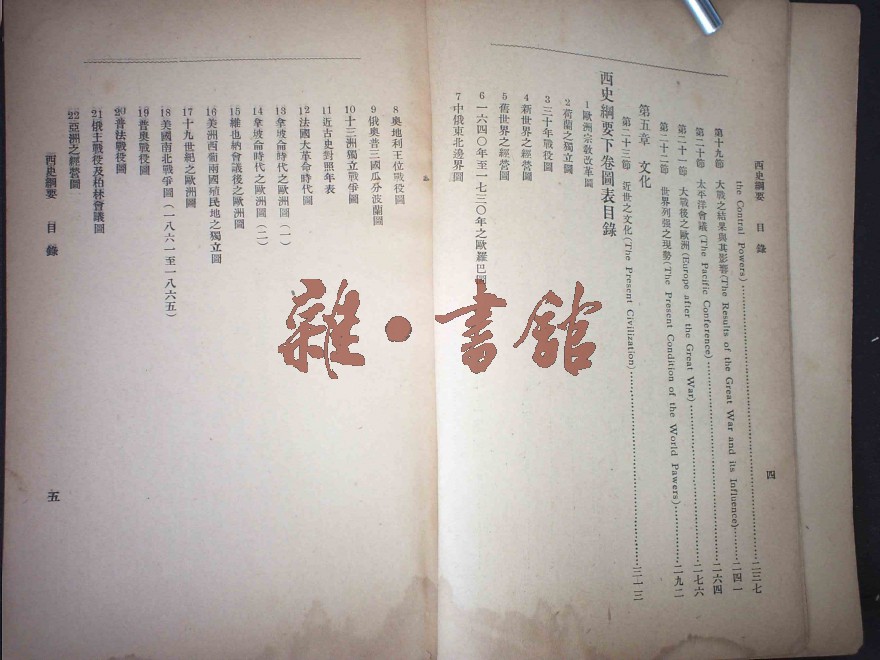 西史綱要 目錄
四
the Contral Powers)……二三七
第十九節 大戰之結果與其影響(The Results of the Great War and its Influence)……二四一
第二十節 太平洋會議(The Pacific Conference)……二六四
第二十一節 大戰後之歐洲(Europe after the Great War)……二七六
第二十二節 世界列強之現勢(The Present Condition of the World Pawers)……二九二
第五章 文化
第二十三節 近世之文化(The Present Civilization)……三一三
西史綱要下卷圖表目錄
1 歐洲宗教改革圖
2 荷蘭之獨立圖
3 三十年戰役圖
4 新世界之經營圖
5 舊世界之經營圖
6 一六四〇年至一七三〇年之歐羅巴圖
7 中俄東北邊界圖
8 奧地利王位戰役圖
9 俄奧普三國瓜分波蘭圖
10 十三洲獨立戰爭圖
11 近古史對照年表
12 法國大革命時代圖
13 拿坡侖時代之歐洲圖(一)
14 拿坡侖時代之歐洲圖(二)
15 維也納會議後之歐洲圖
16 美洲西葡兩國殖民地之獨立圖
17 十九世紀之歐洲圖
18 美國南北戰爭圖(一八六一至一八六五)
19 普奧戰役圖
20 普法戰役圖
21 俄土戰役及柏林會議圖
22 亞洲之經營圖
西史綱要 目錄
五
雜·書館